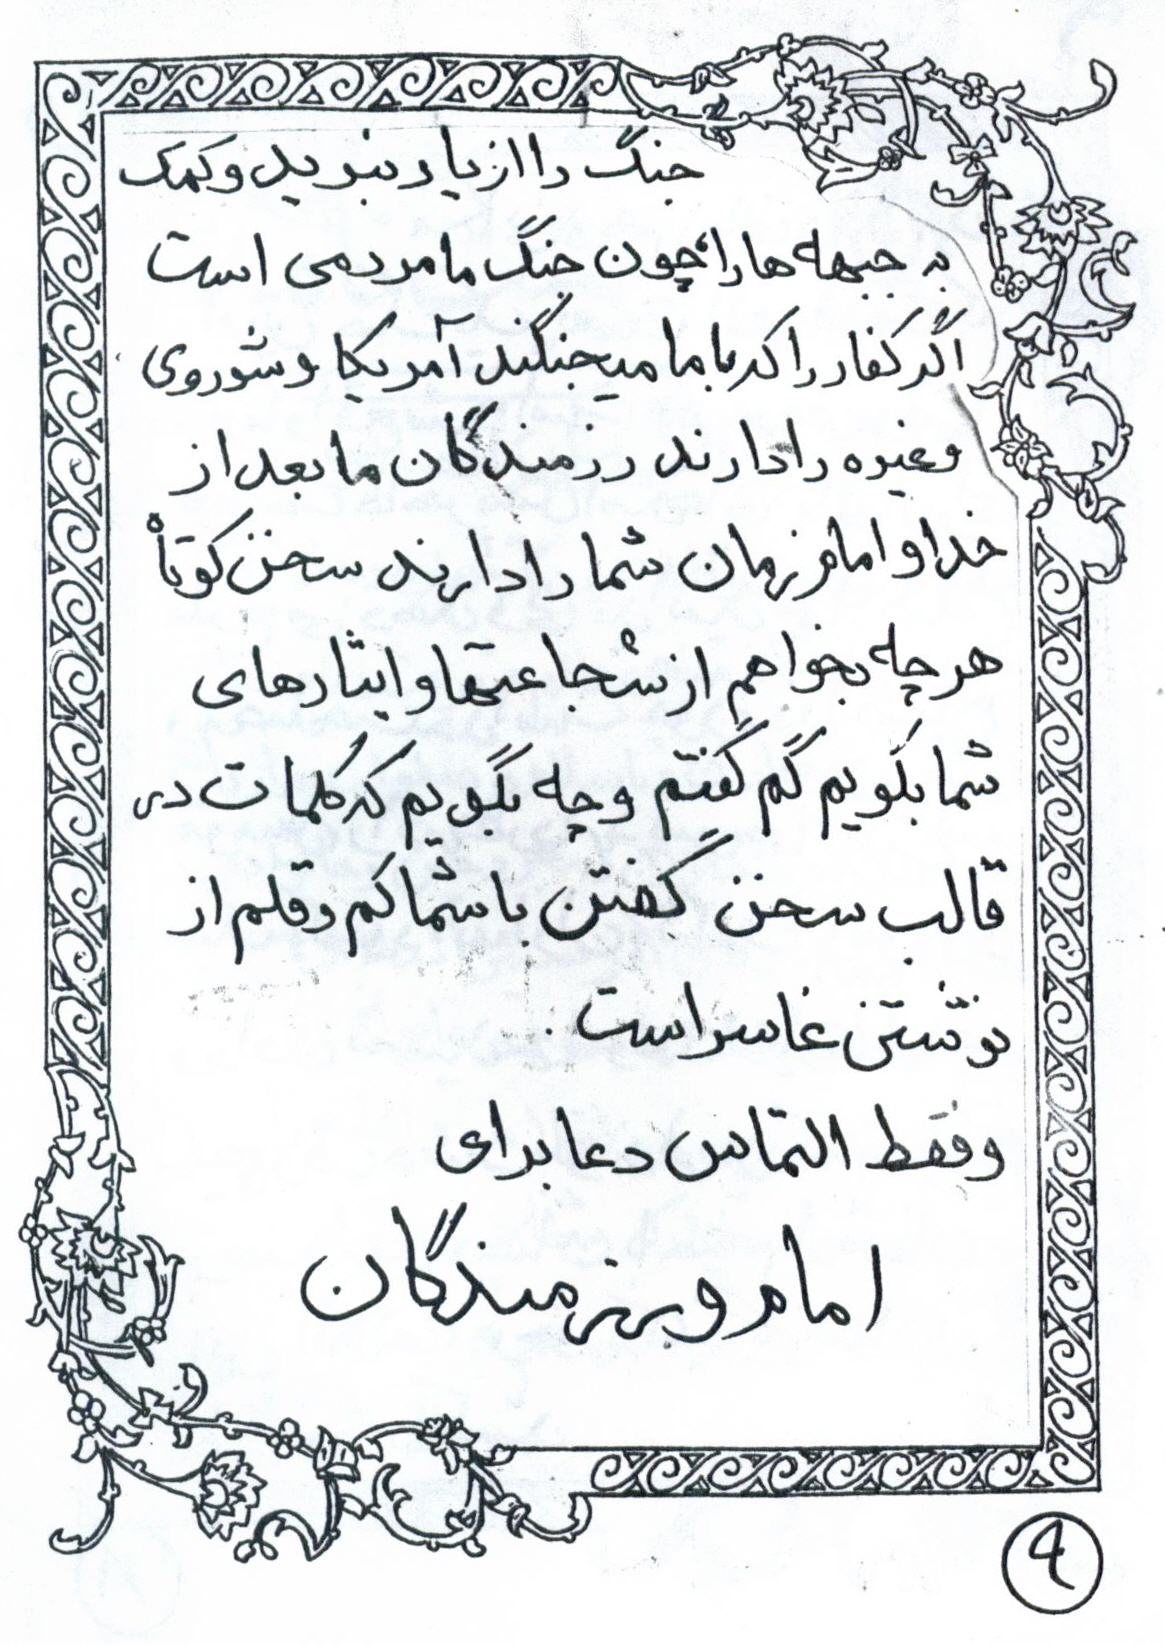 جنگ را از یاد نبرید و کمک
به جبهه ها را، چون جنگ ما مردمی است
اگر کفار را که با ما میجنگند آمریکا و شوروی
و غیره را دارند رزمندگان ما بعد از
خدا و امام زمان شما را دارند سخن کوتاه
هر چه بخواهم از شجاعتها و ایثارهای
شما بگویم کم گفتم و چه بگویم که کلمات در
قالب سخن گفتن با شما کم و قلم از
نوشتن غاسر است.
و فقط التماس دعا برای
امام و رزمندگان
۹